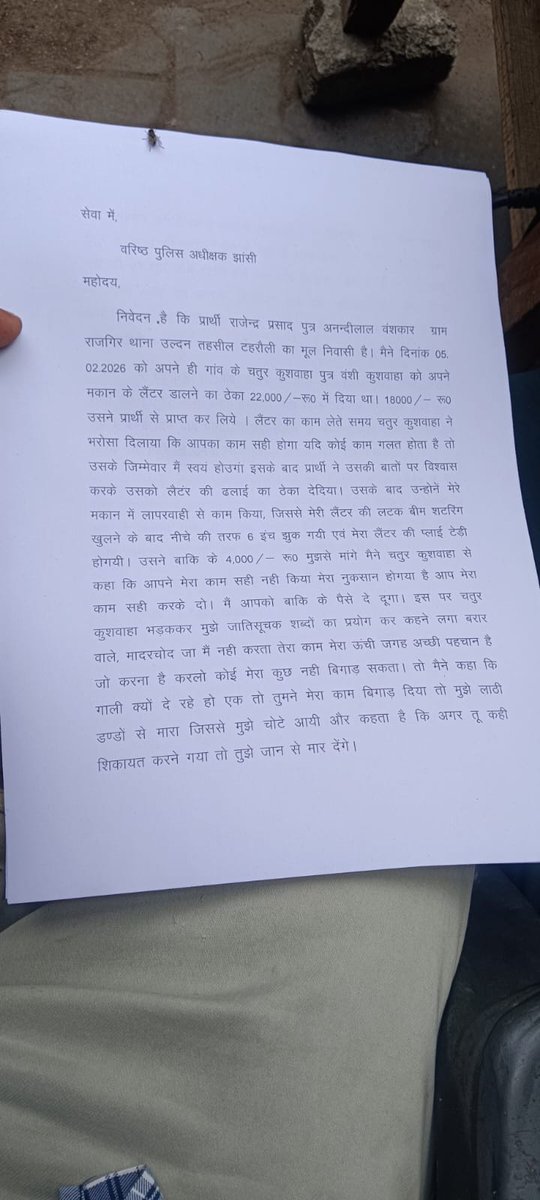 सेवा में,
वरिष्ठ पुलिस अधीक्षक झांसी
महोदय,
निवेदन है कि प्रार्थी राजेन्द्र प्रसाद पुत्र अनन्दीलाल वंशकार ग्राम
राजगिर थाना उल्दन तहसील टहरौली का मूल निवासी है। मैने दिनांक 05.
02.2026 को अपने ही गांव के चतुर कुशवाहा पुत्र वंशी कुशवाहा को अपने
मकान के लैंटर डालने का ठेका 22,000/-रू0 में दिया था। 18000/- रू0
उसने प्रार्थी से प्राप्त कर लिये । लैंटर का काम लेते समय चतुर कुशवाहा ने
भरोसा दिलाया कि आपका काम सही होगा यदि कोई काम गलत होता है तो
उसके जिम्मेवार मैं स्वयं होउगां इसके बाद प्रार्थी ने उसकी बातों पर विश्वास
करके उसको लैटंर की ढलाई का ठेका देदिया। उसके बाद उन्होनें मेरे
मकान में लापरवाही से काम किया, जिससे मेरी लैंटर की लटक बीम शटरिंग
खुलने के बाद नीचे की तरफ 6 इंच झुक गयी एवं मेरा लैंटर की प्लाई टेड़ी
होगयी। उसने बाकि के 4,000/- रू0 मुझसे मांगे मैने चतुर कुशवाहा से
कहा कि आपने मेरा काम सही नही किया मेरा नुकसान होगया है आप मेरा
काम सही करके दो। मैं आपको बाकि के पैसे दे दूगा। इस पर चतुर
कुशवाहा भड़ककर मुझे जातिसूचक शब्दों का प्रयोग कर कहने लगा बरार
वाले, मादरचोद जा मैं नही करता तेरा काम मेरा ऊंची जगह अच्छी पहचान है
जो करना है करलो कोई मेरा कुछ नही बिगाड़ सकता। तो मैने कहा कि
गाली क्यों दे रहे हो एक तो तुमने मेरा काम बिगाड़ दिया तो मुझे लाठी
डण्डों से मारा जिससे मुझे चोटे आयी और कहता है कि अगर तू कही
शिकायत करने गया तो तुझे जान से मार देंगे।